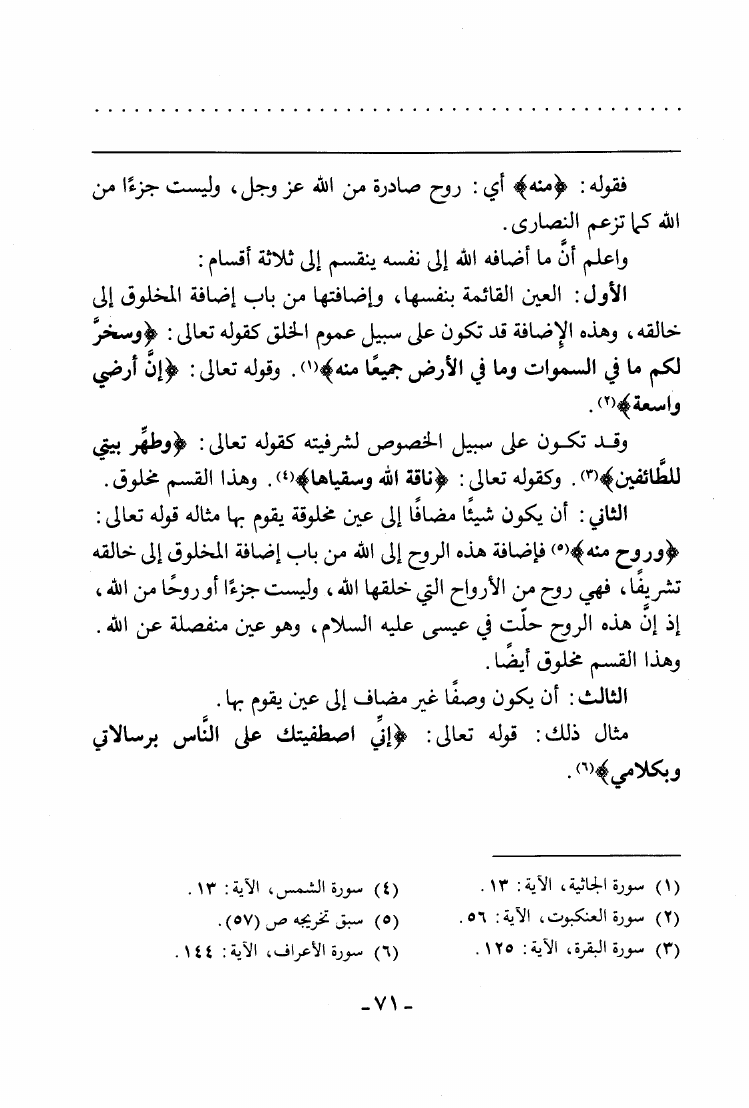 فقوله: ﴿منه﴾ أي: روح صادرة من الله عز وجل، وليست جزءًا من
الله كما تزعم النصارى.
واعلم أنَّ ما أضافه الله إلى نفسه ينقسم إلى ثلاثة أقسام:
الأول: العين القائمة بنفسها، وإضافتها من باب إضافة المخلوق إلى
خالقه، وهذه الإضافة قد تكون على سبيل عموم الخلق كقوله تعالى: ﴿وسخرَّ
لكم ما في السموات وما في الأرض جميعًا منه﴾(١). وقوله تعالى: ﴿إنَّ أرضي
واسعة﴾(٢).
وقد تكون على سبيل الخصوص لشرفيته كقوله تعالى: ﴿وطهِّر بيتي
للطَّائفين﴾(٣). وكقوله تعالى: ﴿ناقة الله وسقياها﴾(٤). وهذا القسم مخلوق.
الثاني: أن يكون شيئًا مضافًا إلى عين مخلوقة يقوم بها مثاله قوله تعالى:
﴿وروح منه﴾(٥) فإضافة هذه الروح إلى الله من باب إضافة المخلوق إلى خالقه
تشريفًا، فهي روح من الأرواح التي خلقها الله، وليست جزءًا أو روحًا من الله،
إذ إنَّ هذه الروح حلّت في عيسى عليه السلام، وهو عين منفصلة عن الله.
وهذا القسم مخلوق أيضًا.
الثالث: أن يكون وصفًا غير مضاف إلى عين يقوم بها.
مثال ذلك: قوله تعالى: ﴿إنِّي اصطفيتك على النَّاس برسالاتي
وبكلامي﴾(٦).
(١) سورة الجاثية، الآية: ١٣.
(٢) سورة العنكبوت، الآية: ٥٦.
(٣) سورة البقرة، الآية: ١٢٥.
(٤) سورة الشمس، الآية: ١٣.
(٥) سبق تخريجه ص (٥٧).
(٦) سورة الأعراف، الآية: ١٤٤.
- ٧١ -